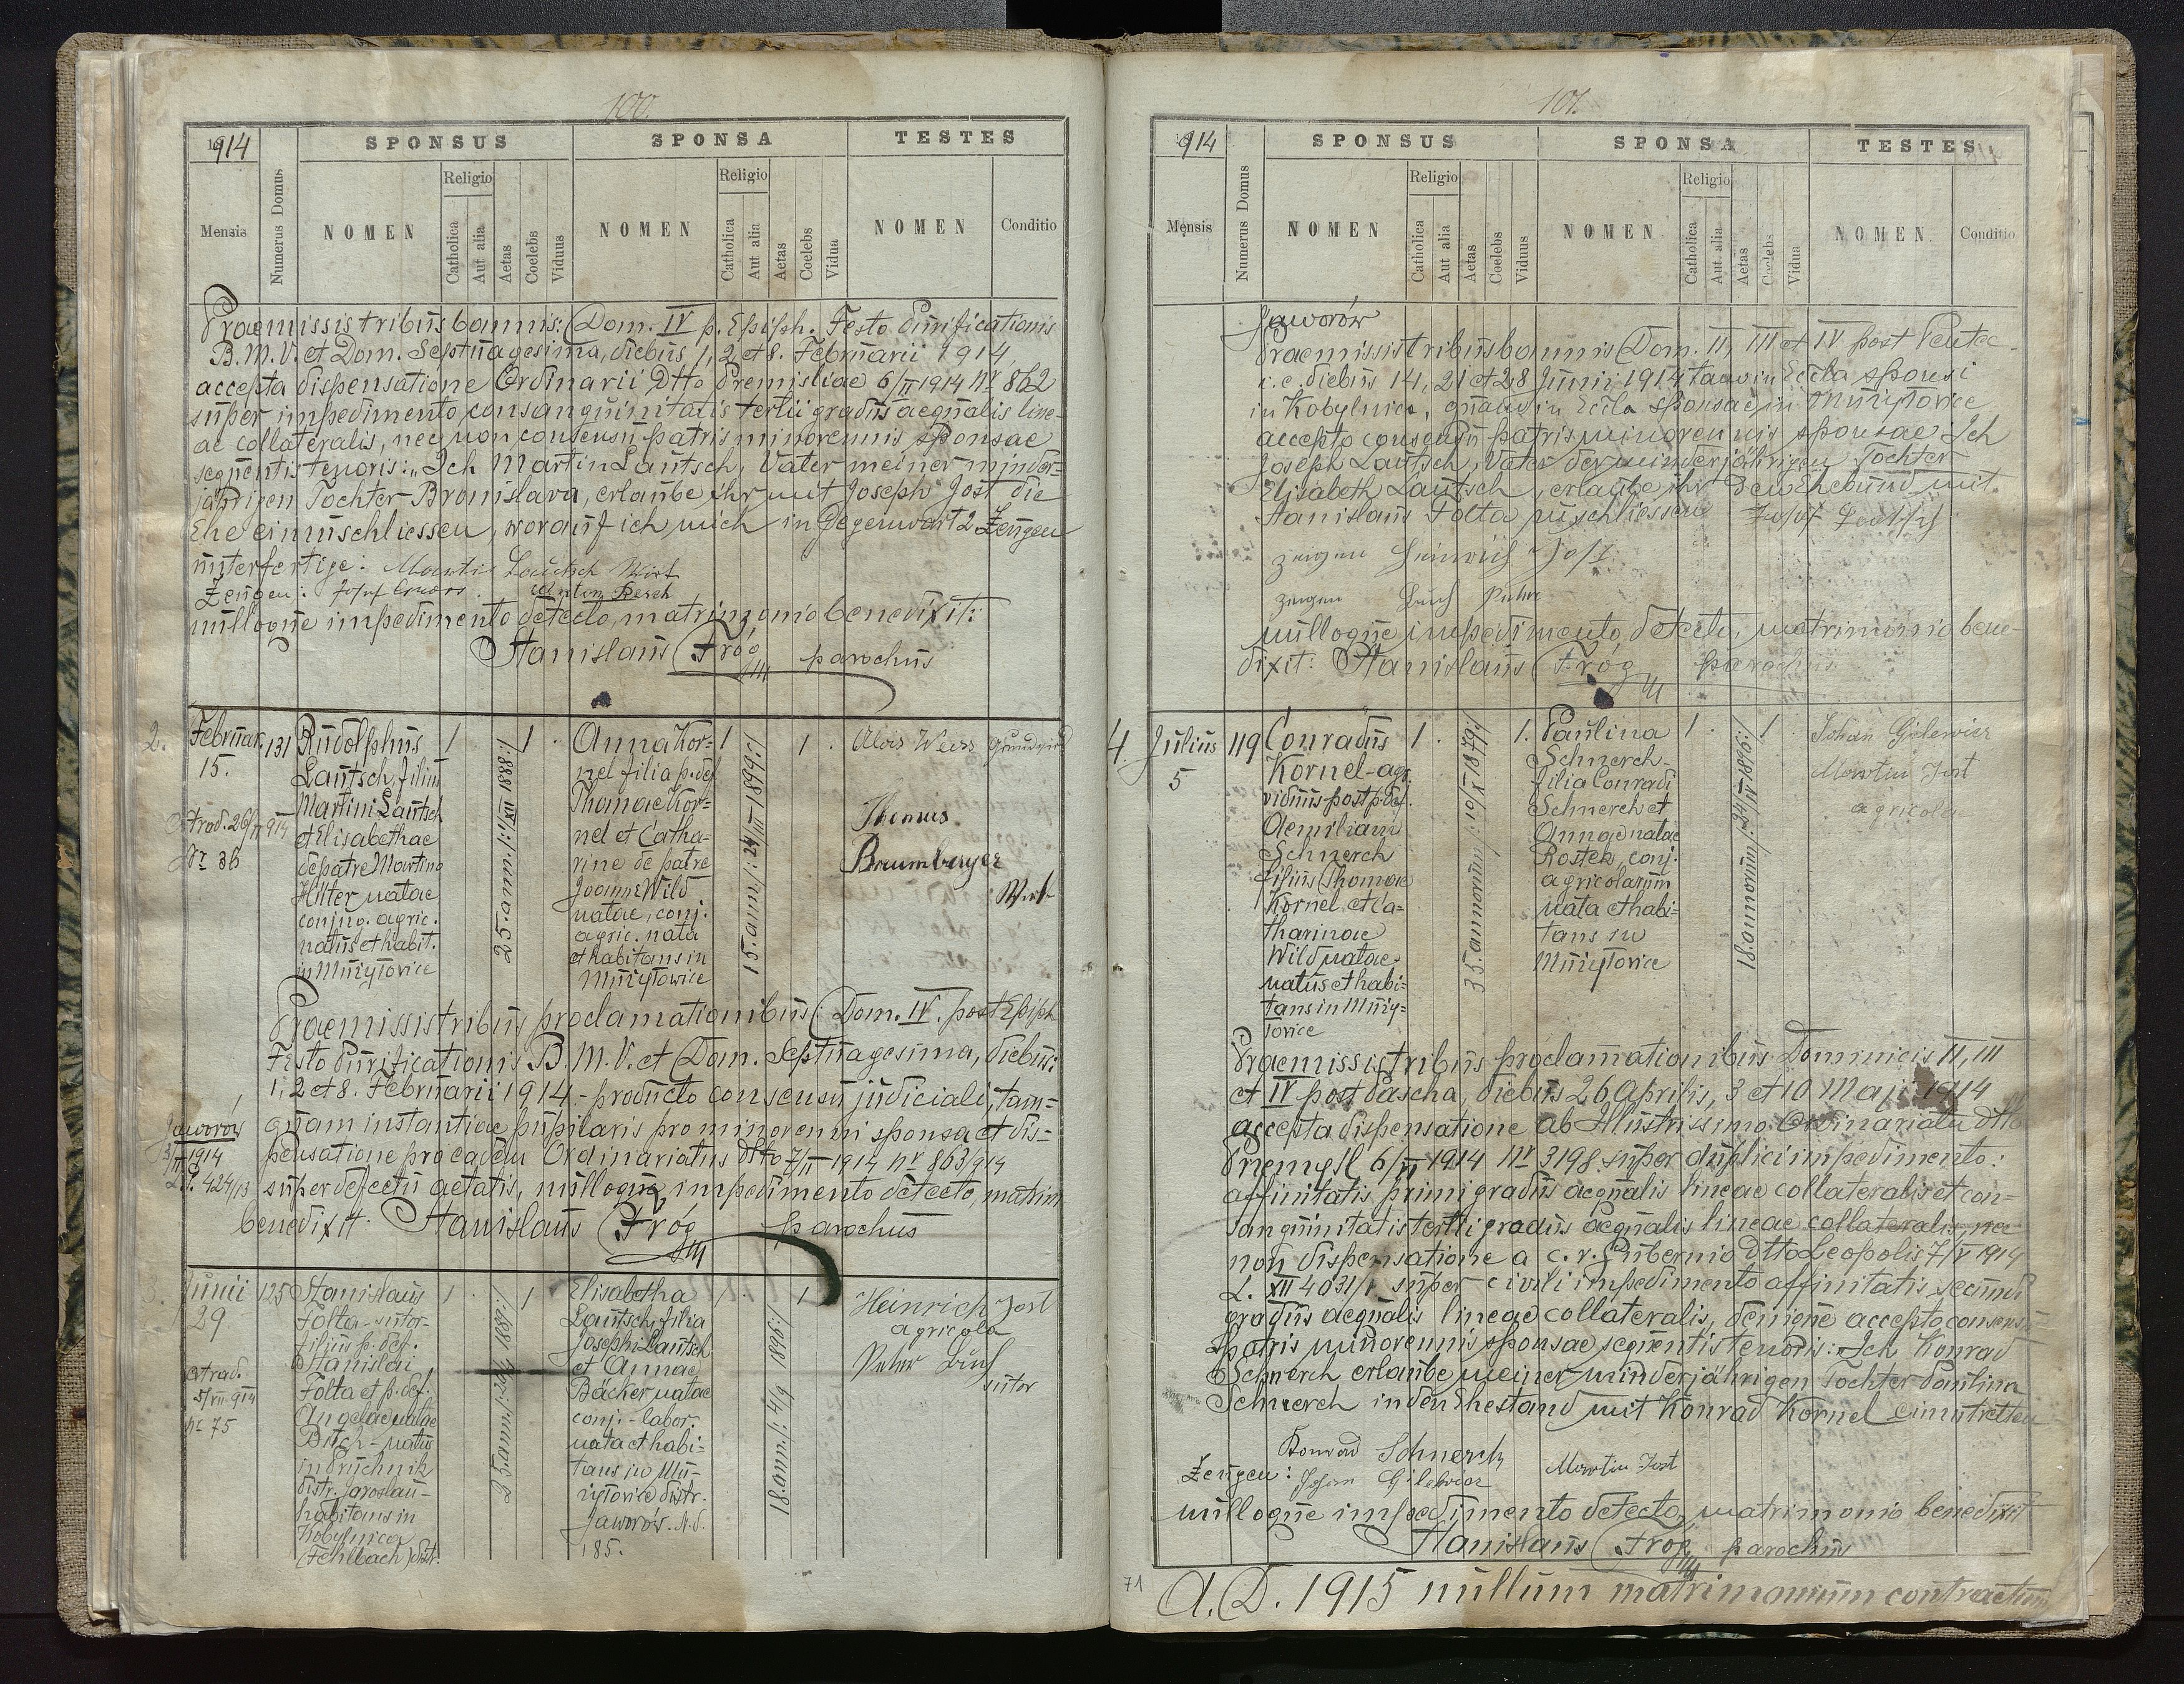 100.
1914
SPONSUS
SPONSA
TESTES
Mensis
Numerus Domus
NOMEN
Religio
Catholica
Aut alia
Aetas
Coelebs
Viduus
NOMEN
Religio
Catholica
Aut alia
Aetas
Coelebs
Vidua
NOMEN
Conditio
Praemissis tribus bannis: Dom. IV p. Epiph. Festo Purificationis
B. M. V. et Dom. Septuagesima, diebus 1, 2, et 8. Februarii 1914,
accepta dispensatione Ordinarii Dtto Premisliae 6/II 1914 Nr 862
super impedimento consanguinitatis tertii gradus aequalis line-
ae collateralis, nec non consensu patris minorennis sponsae
sequentis tenoris: „Ich Martin Lautsch, Vater meiner minder-
jährigen Tochter Bronislava, erlaube ihr mit Joseph Jost die
Ehe einzuschliessen, worauf ich mich in Gegenwart 2 Zeugen
unterfertige: Martin Lautsch Wirt
Zeugen: Josef
nulloque impedimento detecto, matrimonio benedixit:
Stanislaus Fróg parochus
2.
Februar.
15.
Extrad. 26/II 914
Nr 36
131
Rudolphus
Lautsch, filius
Martini Lautsch
et Elisabethae
de patre Martino
natae
conjug. agric.
natus et habit.
in Mużyłovice
1
25. annor./: 1888:/
1
Anna Kor-
nel filia p. def.
Thomae Kor-
nel et Catha-
rine de patre
Joanne Wild
natae, conj.
agric. nata
et habitans in
Mużyłowice
1
15. ann/: 24/III 1899:/
1
Alois Weiss
Thomas
Baumberger
Wirt
Praemissis tribus proclamationibus: Dom. IV. post Epiph.
Festo Purificationis B. M. V. et Dom. Septuagesima, diebus:
1, 2 et 8. Februarii 1914 - producto consensu judiciali, tam-
quam instantiae pupilaris pro minorenni sponsa et dis-
pensatione pro eadem Ordinariatus dtto 7/II 1914 Nr 863/914
super defectu aetatis, nulloque impedimento detecto, matrim.
benedixit: Stanislaus Fróg parochus
Jaworów
1914
424/13
Junii
29
Extrad.
5/VII 914
Nr 75
125
Stanislaus
Folta - sutor
filius p. def.
Stanislai
Folta et p. def.
Angelae natae
natus
in Gruchnik
distr. Jaroslau -
habitans in
Kobylnica
(Fehlbach) distr.
1
1
Elisabetha
Lautsch, filia
Josephi Lautsch
et Annae
Bäcker natae
conj. - labor.
nata et habi-
tans in Mu-
żyłovice distr.
Jaworów. N. d.
185.
1
18. ann/: 4/9 1896:/
1
Heinrich Jost
agricola
Peter
sutor
101.
1914
SPONSUS
SPONSA
TESTES
Mensis
Numerus Domus
NOMEN
Religio
Catholica
Aut alia
Aetas
Coelebs
Viduus
NOMEN
Religio
Catholica
Aut alia
Aetas
Coelebs
Vidua
NOMEN
Conditio
Jaworów
Praemissis tribus bannis Dom. II, III et IV post Pentec.
i. e. diebus 14, 21 et 28 Junii 1914 tam in Eccla sponsi
in Kobylnica, quam in Eccla sponsae in Mużyłovice
accepto consensu patris minorennis sponsae: Ich
Joseph Lautsch, Vater der minderjährigen Tochter
Elisabeth Lautsch, erlaube ihr den Ehebund mit
Stanislaus Folta zu schliessen
zeugen Heinrich Jost
zeugen
nulloque impedimento detecto, matrimonio bene-
dixit: Stanislaus Fróg parochus
4.
Julius
5
119
Conradus
Kornel - agr.
viduus post p. def.
Aemiliam
Schnerch
filius Thomae
Kornel et Ca-
tharinae
Wild natae
natus et habi-
tans in Muży-
łovice
1
35. annorum/: 10/X 1879:/
1.
Paulina
Schnerch -
filia Conradi
Schnerch et
Annae natae
conj.
agricolarum
nata et habi-
tans in
Mużyłovice
1
18. annorum/: 24/IV 1896:/
1
Johan Gilewicz
Martin Jost
agricola
Praemissis tribus proclamationibus Dominicis II, III
et IV post Pascha, diebus 26 Aprilis, 3 et 10 Maji 1914
accepta dispensatione ab Illustrissimo Ordinariatu dtto
Przemysl 6/VI 1914 Nr 3198 super duplici impedimento:
affinitatis primi gradus aequalis lineae collateralis et con-
sanguinitatis tertii gradus aequalis lineae collateralis, nec
non dispensatione a c. r. Gubernio dtto Leopolis 7/V 1914
L. XII 4031/1 super civili impedimento affinitatis secundi
gradus aequalis lineae collateralis, denique accepto consensu
patris minorennis sponsae sequentis tenoris: Ich Konrad
Schnerch erlaube meiner minderjährigen Tochter Paulina
Schnerch in den Ehestand mit Konrad Kornel einzutretten
Konrad Schnerch
Zeugen: Johan Gilewicz Martin Jost
nulloque impedimento detecto, matrimonio benedixit
Stanislaus Fróg parochus
71
A. D. 1915 nullum matrimonium contractum